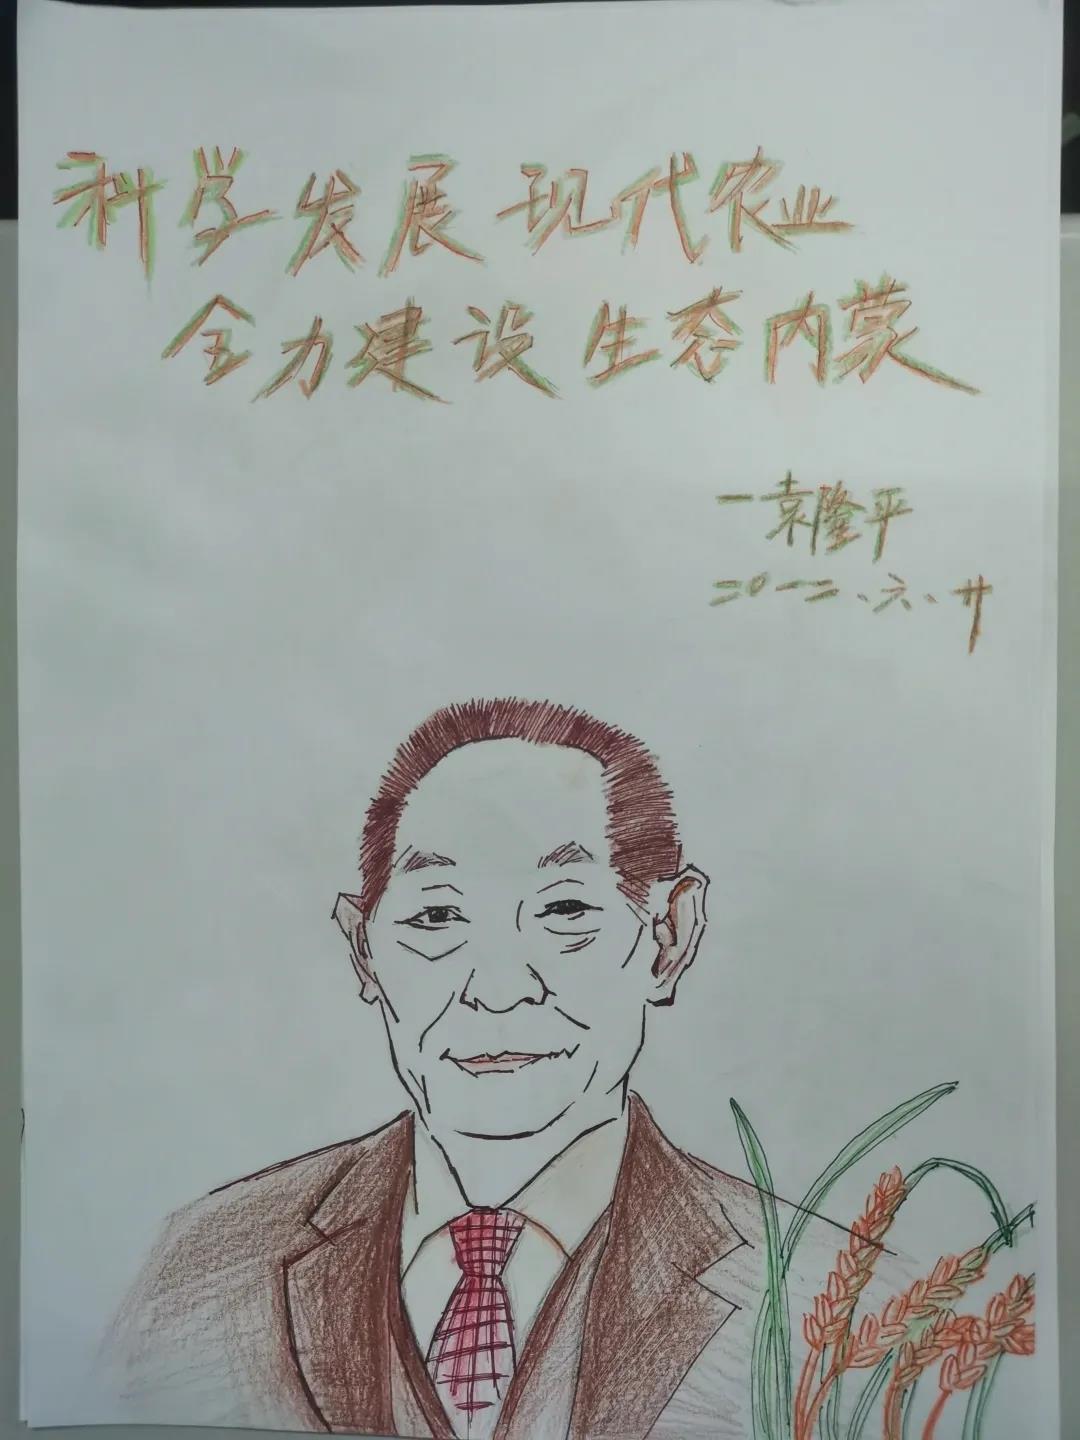 科学发展 现代农业
全力建设 生态内蒙
一袁隆平
二〇一二、六、廿